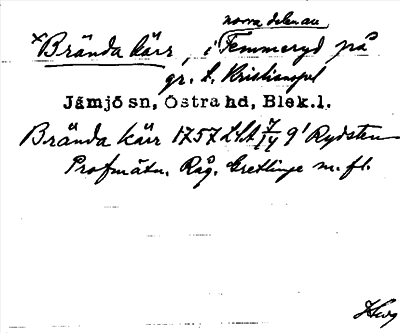 norra delen av
×Brända kärr, i Femmeryd på
gr. t. Kristianopel
Jämjö sn, Östra hd, Blek. l.
Brända kärr 1757 Lskt 7/14 9' Rydsten
Profmätn. Råg. Gretlinge m. fl.